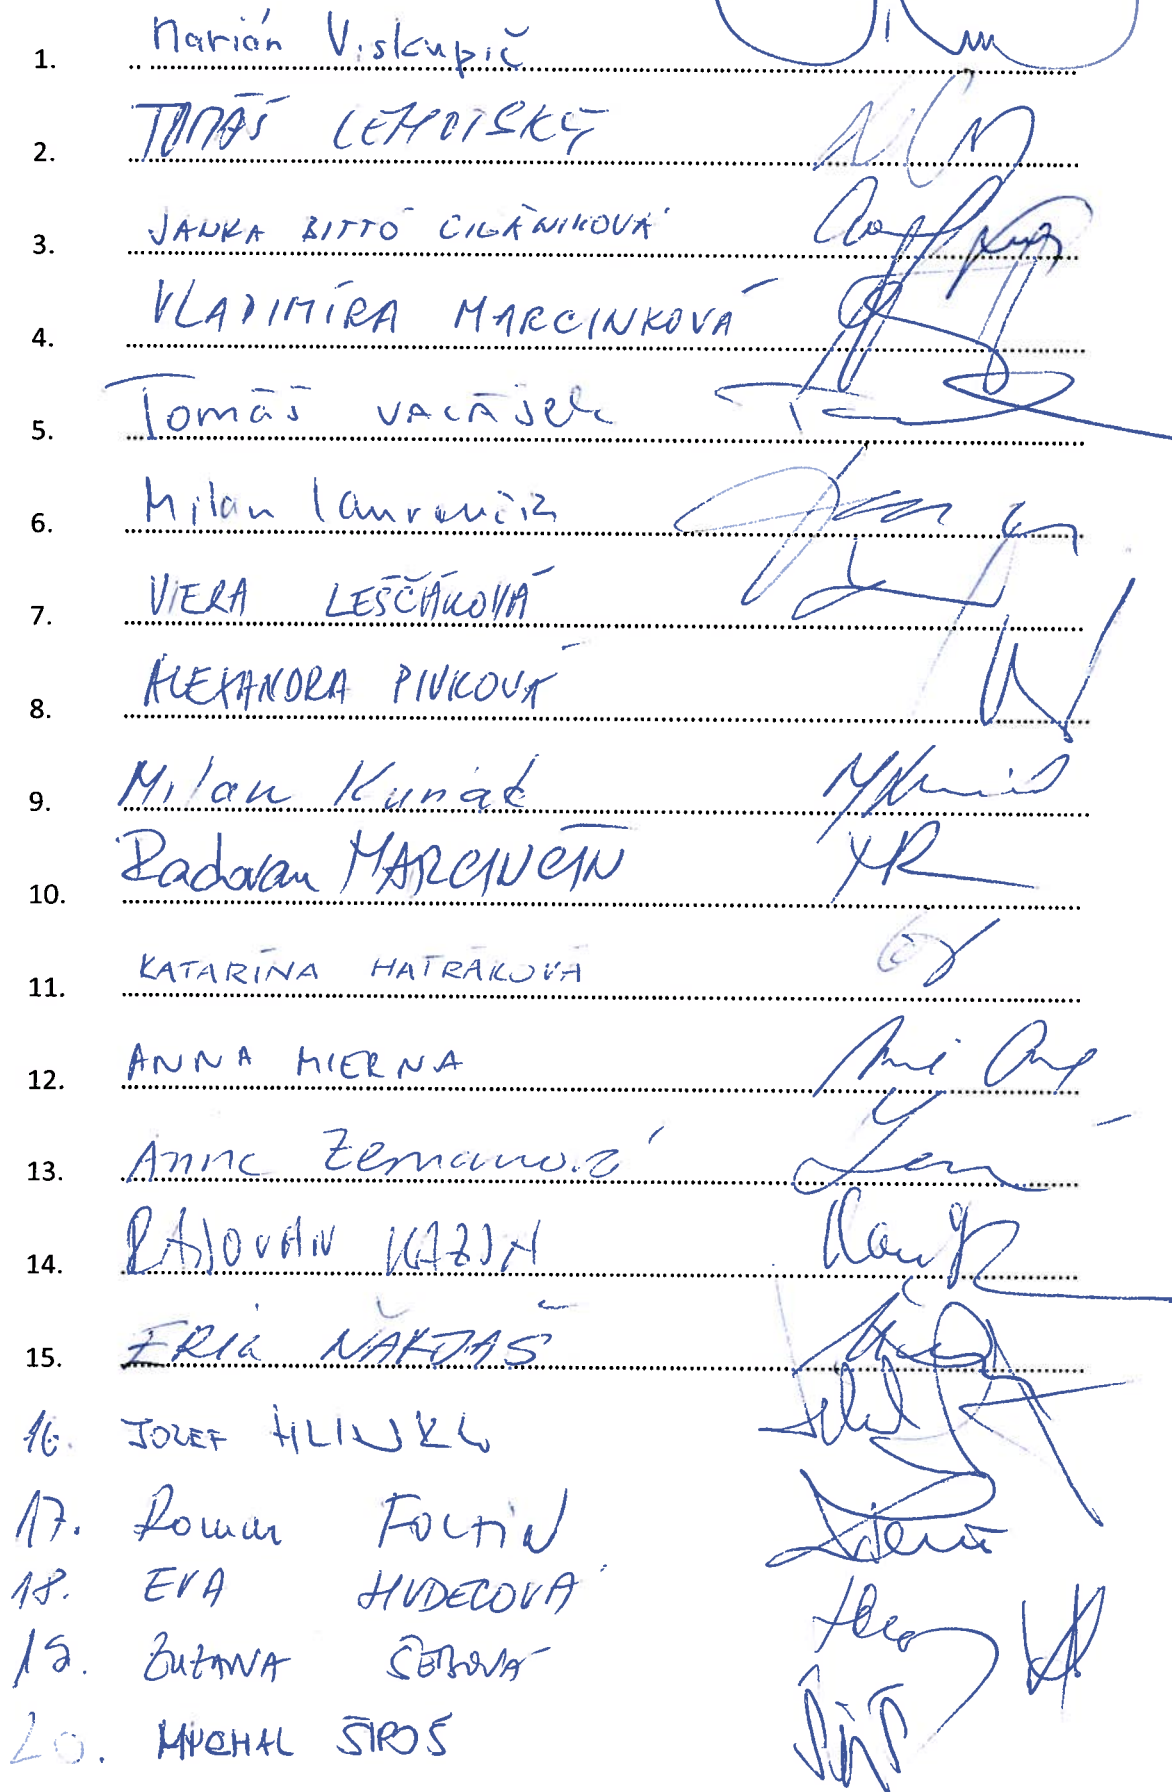 1. Marián Viskupič
2. TOMÁŠ LEHOTSKÝ
3. JANKA BITTÓ CIGÁNIKOVÁ
4. VLADIMÍRA MARCINKOVÁ
5. Tomáš VALÁŠEK
6. Milan Laurenčík
7. VIERA LEŠČÁKOVÁ
8. ALEXANDRA PIVKOVÁ
9. Milan Kuriak
10. Radovan MARCINČIN
11. KATARÍNA HATRÁKOVÁ
12. ANNA MIERNA
13. Anna Zemanová
14. RADOVAN KAZDA
15. ERIK ŇARJAŠ
16. JOZEF HLINKA
17. Roman FOLTIN
18. EVA HUDECOVÁ
19. ZUZANA ŠEBOVÁ
20. MICHAL ŠIPOŠ